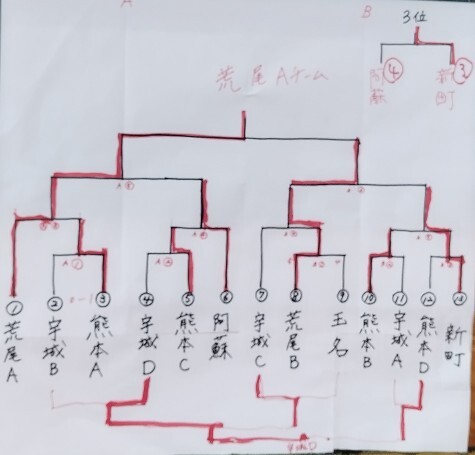 A
B
3位
阿蘇 ④
新町 ③
荒尾Aチーム
① 荒尾A
② 宇城B
③ 熊本A
④ 宇城D
⑤ 熊本C
⑥ 阿蘇
⑦ 宇城C
⑧ 荒尾B
⑨ 玉名
⑩ 熊本B
⑪ 宇城A
⑫ 熊本D
⑬ 新町